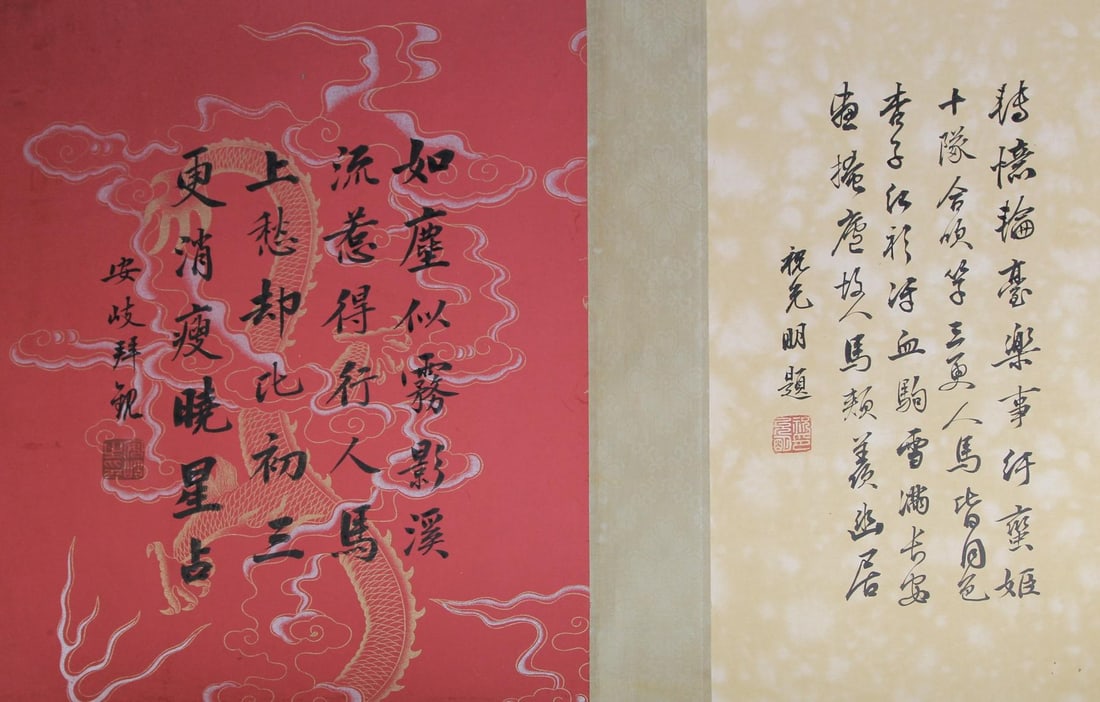 轉憶輪臺樂事紆蠻姬
十隊合吹竽三更人馬皆同色
杏子紅衫汗血駒雪滿長安
畫掩廬故人馬頰羨幽居
祝允明題
如塵似霧影溪
流惹得行人馬
上愁却比初三
更消瘦曉星占
安岐拜觀